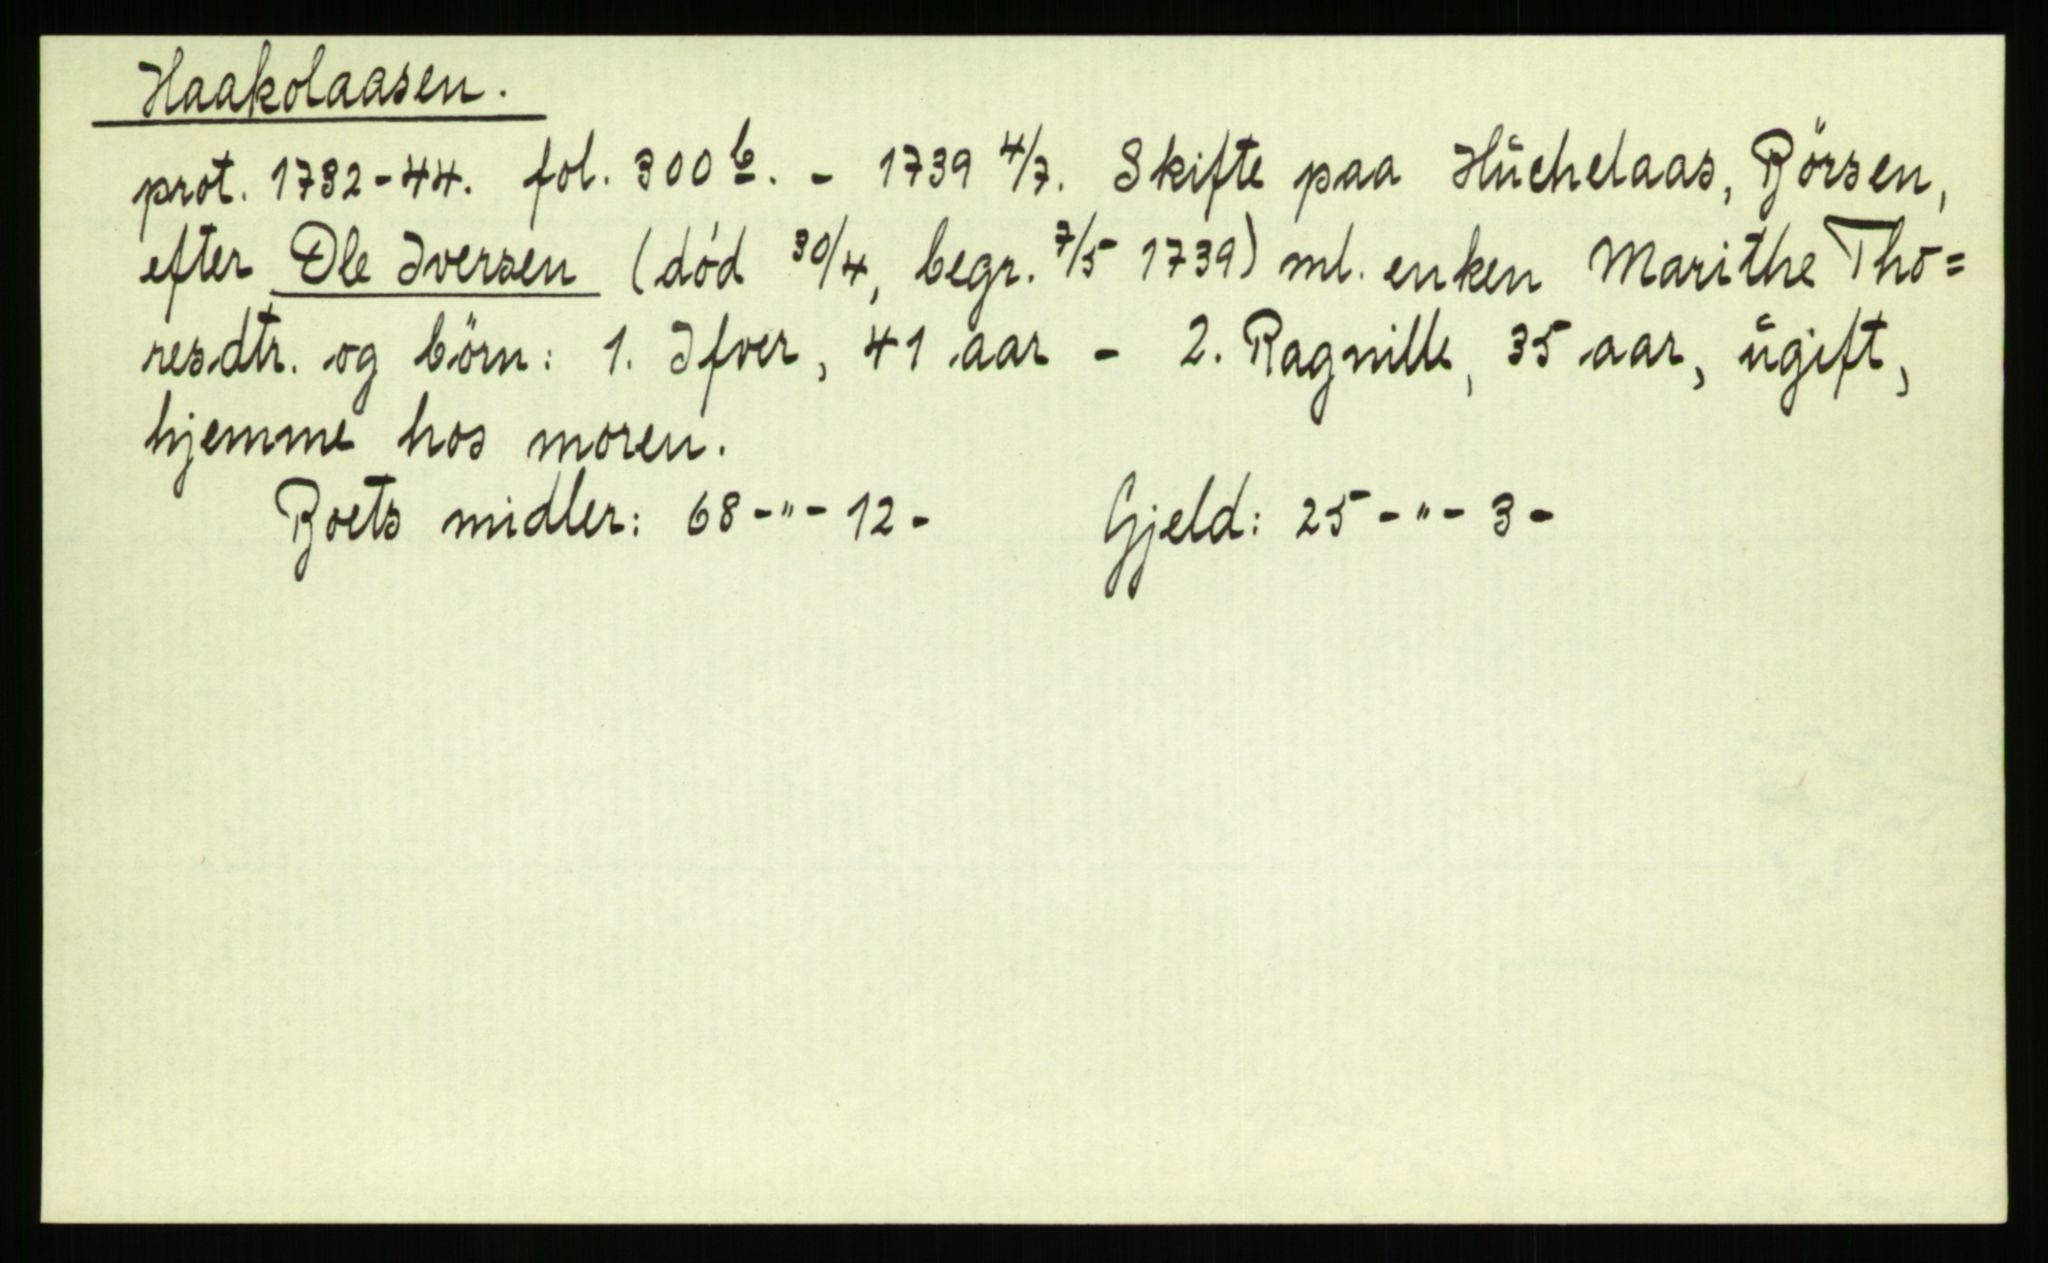 Haakolaasen.
prot. 1732-44. fol. 300 b. - 1739 4/7. Skifte paa Hŭchelaas, Börsen,
efter Ole Iversen (död 30/4, begr. 7/5 1739) ml. enken Marithe Tho=
resdtr. og börn: 1. Ifver, 41 aar - 2. Ragnille, 35 aar, ŭgift,
hjemme hos moren.
Boets midler: 68-"-12- Gjeld: 25-"-3-